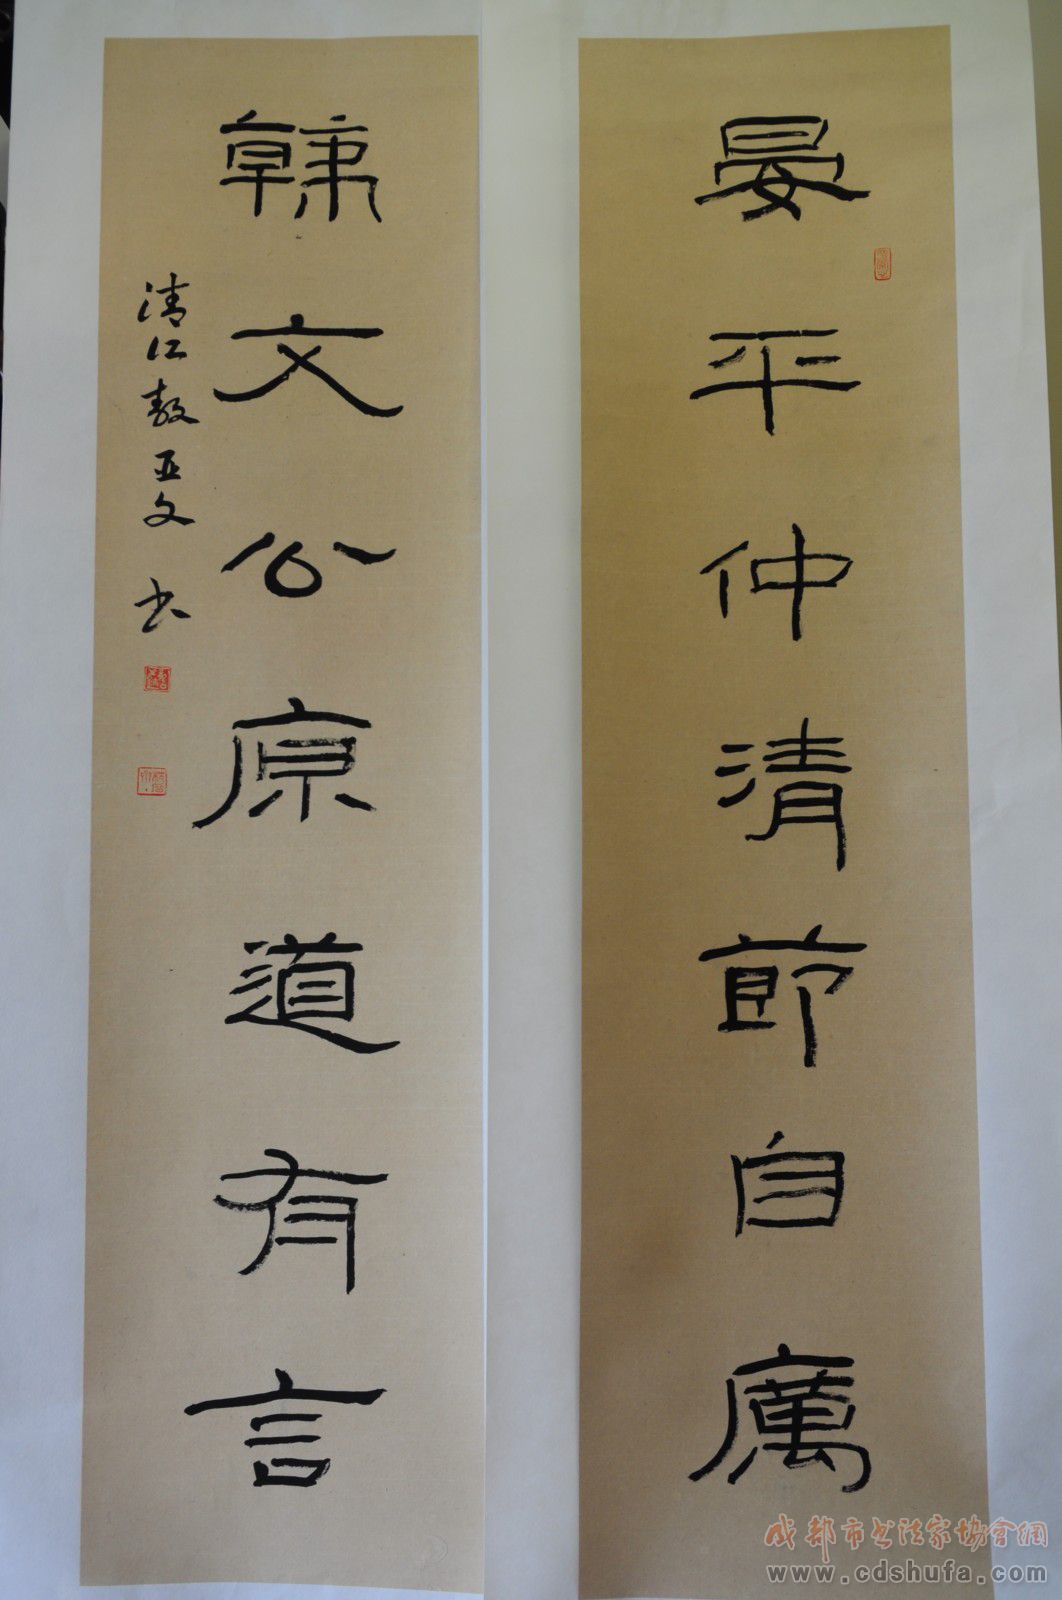 晏平仲清節自厲
韓文公原道有言
清江敖亚文书
成都市书法家协会網
www.cdshufa.com